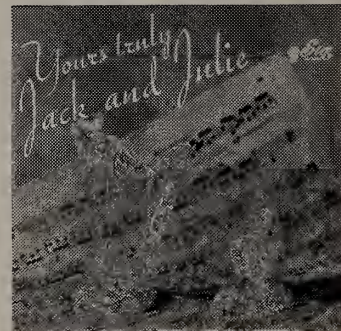 Yours truly
Jack and Julie